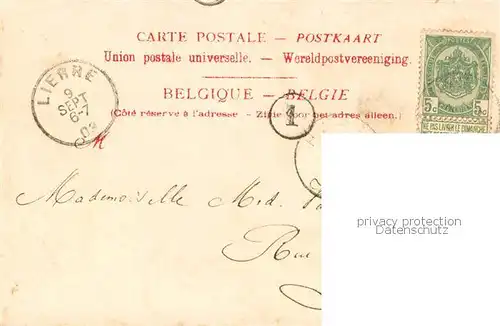 CARTE POSTALE — POSTKAART
Union postale universelle. — Wereldpostvereeniging.
BELGIQUE — BELGIE
(Côté réservé à l'adresse — Zijde voor het adres alleen.)
LIERRE
9
SEPT
6-7
03
1
5c 5c
NE PAS LIVRER LE DIMANCHE
Mademoiselle Med.
Rue
privacy protection
Datenschutz